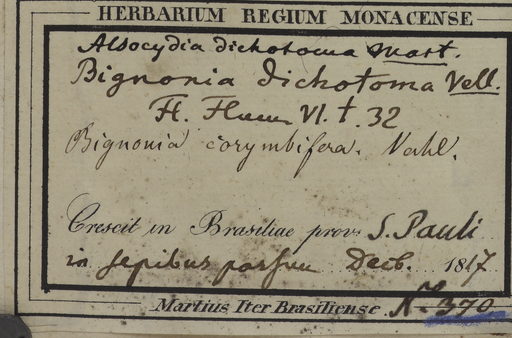 HERBARIUM REGIUM MONACENSE
Alsocydia dichotoma Mart.
Bignonia dichotoma Vell.
Fl. Flum VI. t. 32
Bignonia corymbifera. Vahl.
Crescit in Brasiliae prov. S. Pauli
in sepibus passim Decb. 1817.
Martius Iter Brasiliense. No. 370